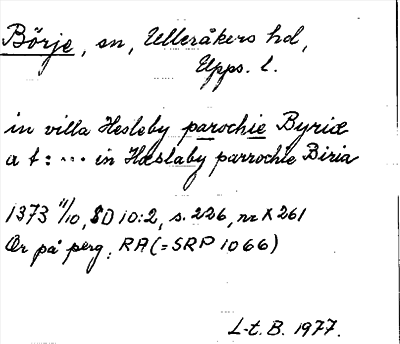 Börje, sn, Ulleråkers hd,
Upps. l.
in villa Hesleby parochie Byriæ
a t: ... in Hæslaby parrochie Biria
1373 11/10, SD 10:2, s. 226, nr X 261
Or på perg, RA (= SRP 1066)
L-t. B. 1977.